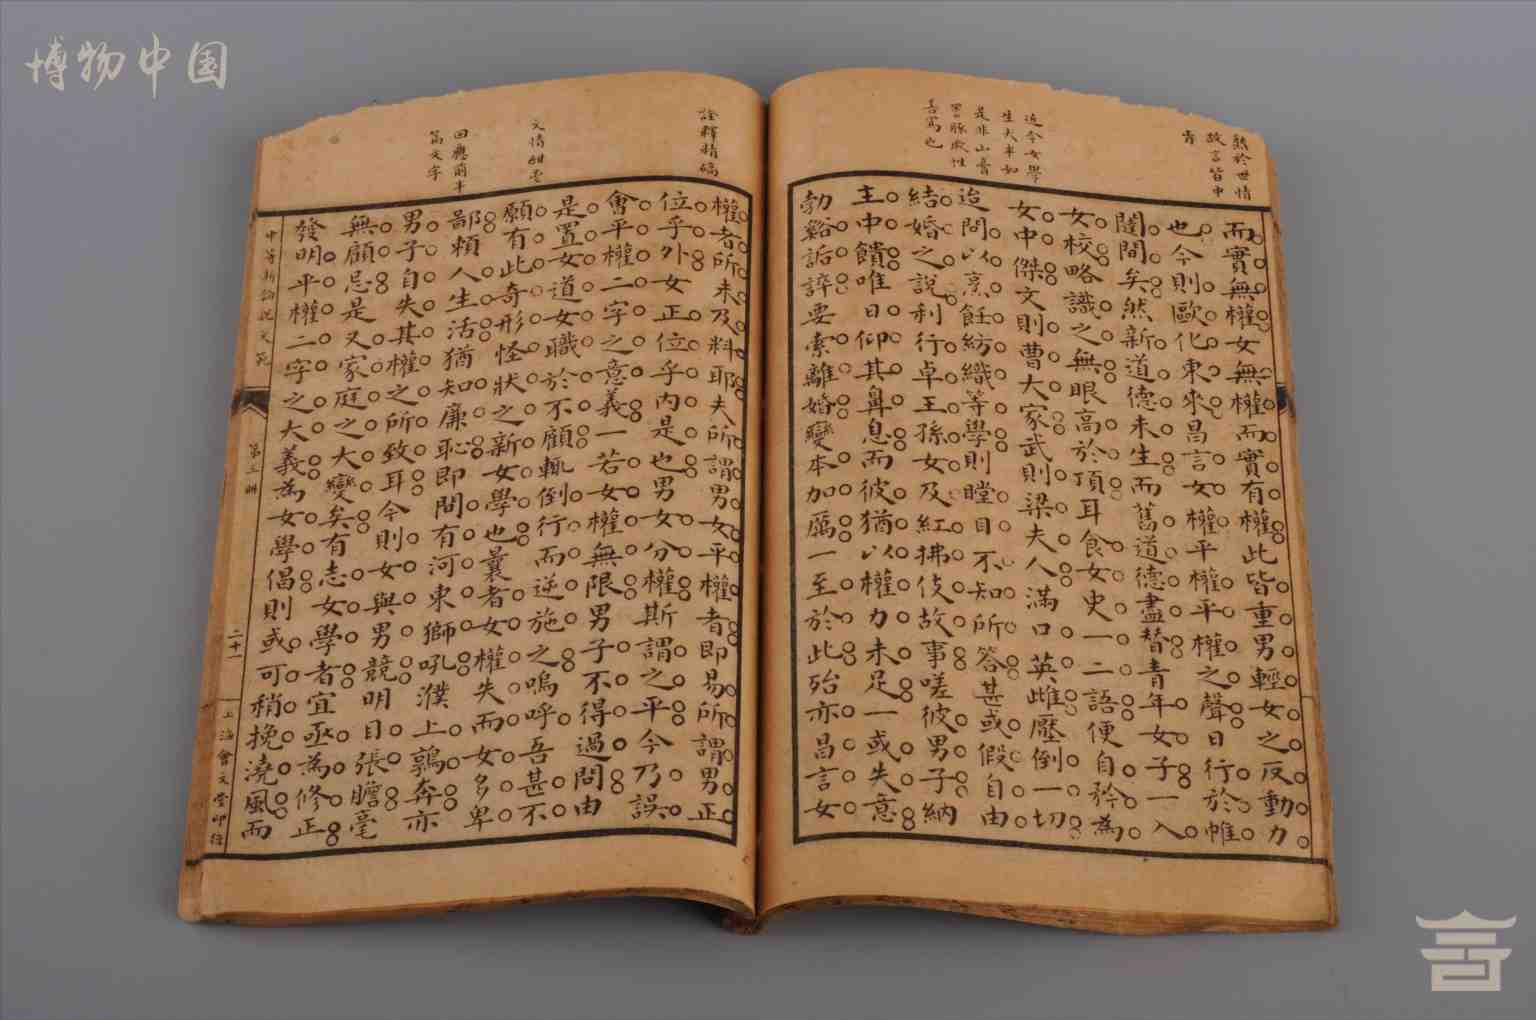 博物中国
熟於世情
故言皆中
肯
而實無權女無權而實有權此皆重男輕女之反動力
也今則歐化東來昌言女權平權平權之聲日行於帷
闥間矣然新道德未生而舊道德盡替青年女子一入
女校略識之無眼高於頂耳食女史一二語便自矜為
女中傑文則曹大家武則梁夫人滿口英雌壓倒一切
迨問以烹飪紡織等學則瞠目不知所答甚或假自由
結婚之說利行卓王孫女及紅拂伎故事嗟彼男子納
主中饋唯日仰其鼻息而彼猶以權力未足一或失意
勃谿詬誶要索離婚變本加厲一至於此殆亦昌言女
近今女學
生大半如
是非山膏
善罵也
詮釋精確
權者所未及料耶夫所謂男女平權者即易所謂男正
位乎外女正位乎內是也男女分權斯謂之平今乃誤
會平權二字之意義一若女權無限男子不得過問由
是置女道女職於不顧輒倒行而逆施之嗚呼吾甚不
願有此奇形怪狀之新女學也曩者女權失而女多卑
鄙賴人生活猶知廉恥即間有河東獅吼濮上鶉奔亦
男子自失其權之所致耳今則女與男競明目張膽毫
無顧忌是又家庭之大變矣有志女學者宜亟為修正
發明平權二字之大義為女學倡則或可稍挽澆風而
回應前半
篇文字
中等新論說文範
第三冊
二十一
上海會文堂印行